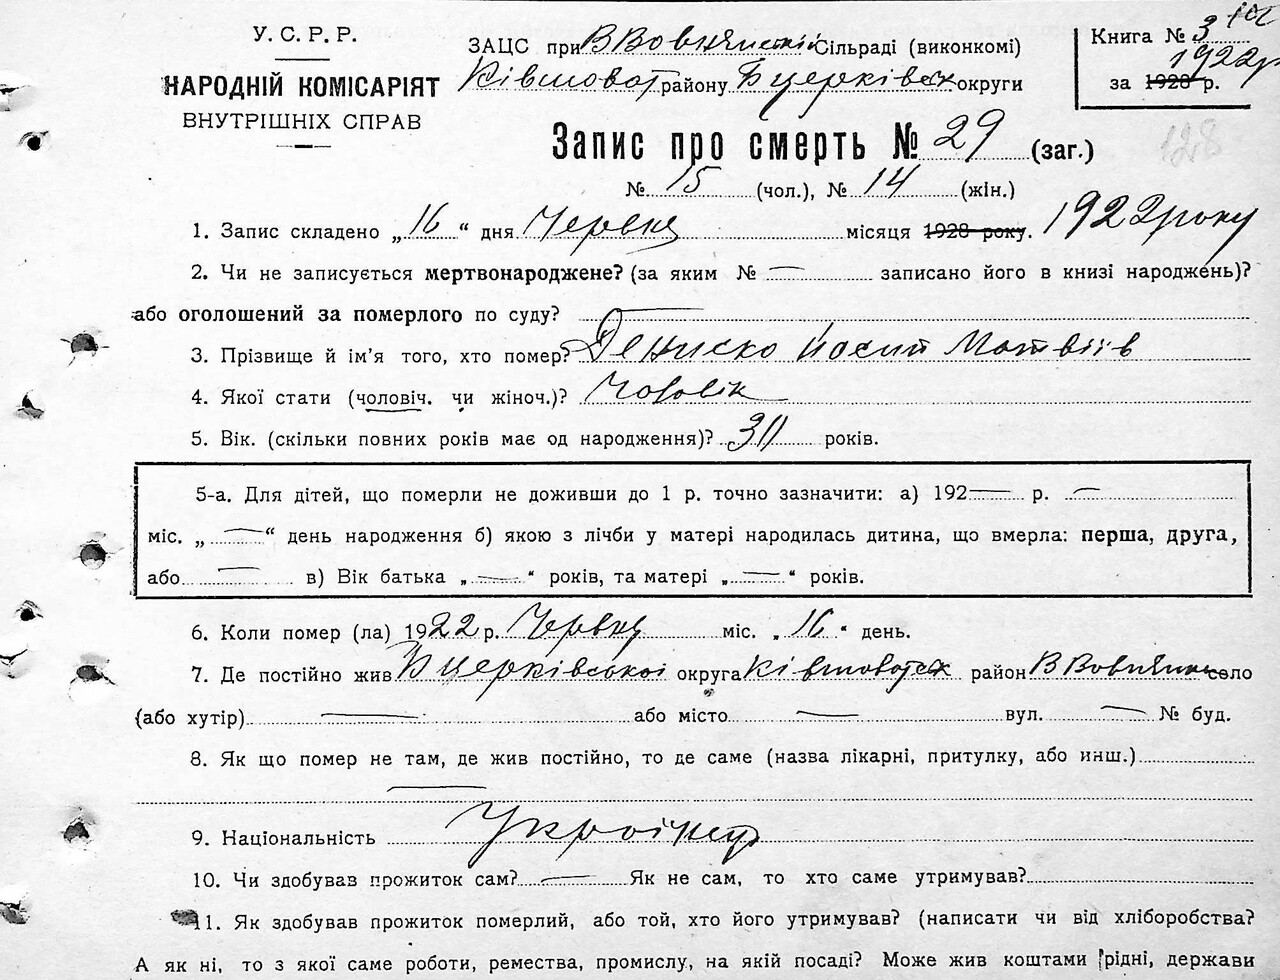 У. С. Р. Р.
НАРОДНІЙ КОМІСАРІЯТ
ВНУТРІШНІХ СПРАВ
ЗАЦС при В Вовнянській Сільраді (виконкомі)
Ківшоват району Б церківськ округи
Книга № 3
1922 р
за 1928 р.
128
Запис про смерть № 29 (заг.)
№ 15 (чол.), № 14 (жін.)
1. Запис складено „16“ дня Червня місяця 1928 року. 1922 року
2. Чи не записується мертвонароджене? (за яким № — записано його в книзі народжень)?
або оголошений за померлого по суду? —
3. Прізвище й ім’я того, хто помер? Дениско Йосип Матвіїв
4. Якої стати (чоловіч. чи жіноч.)? Чоловік
5. Вік. (скільки повних років має од народження)? 30 років.
5-а. Для дітей, що померли не доживши до 1 р. точно зазначити: а) 192— р. —
міс. „—“ день народження б) якою з лічби у матері народилась дитина, що вмерла: перша, друга,
або — в) Вік батька „—“ років, та матері „—“ років.
6. Коли помер (ла) 1922 р. Червня міс. „16“ день.
7. Де постійно жив Б церківської округа Ківшоватськ район В Вовнянка село
(або хутір) — або місто — вул. — № буд.
8. Як що помер не там, де жив постійно, то де саме (назва лікарні, притулку, або инш.)
—
9. Національність Українец
10. Чи здобував прожиток сам? — Як не сам, то хто саме утримував?
11. Як здобував прожиток померлий, або той, хто його утримував? (написати чи від хліборобства?
А як ні, то з якої саме роботи, ремества, промислу, на якій посаді? Може жив коштами рідні, держави